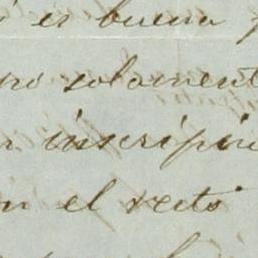 es buena
no solament
inscripci
n el recto